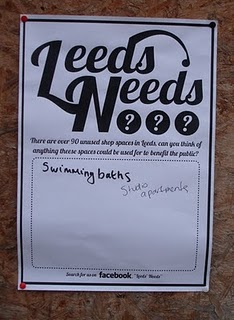 Leeds
Needs
? ? ?
There are over 90 unused shop spaces in Leeds, can you think of
anything theese spaces could be used for to benefit the public?
Swimming baths
Studio
apartments
Search for us on facebook "Leeds Needs"